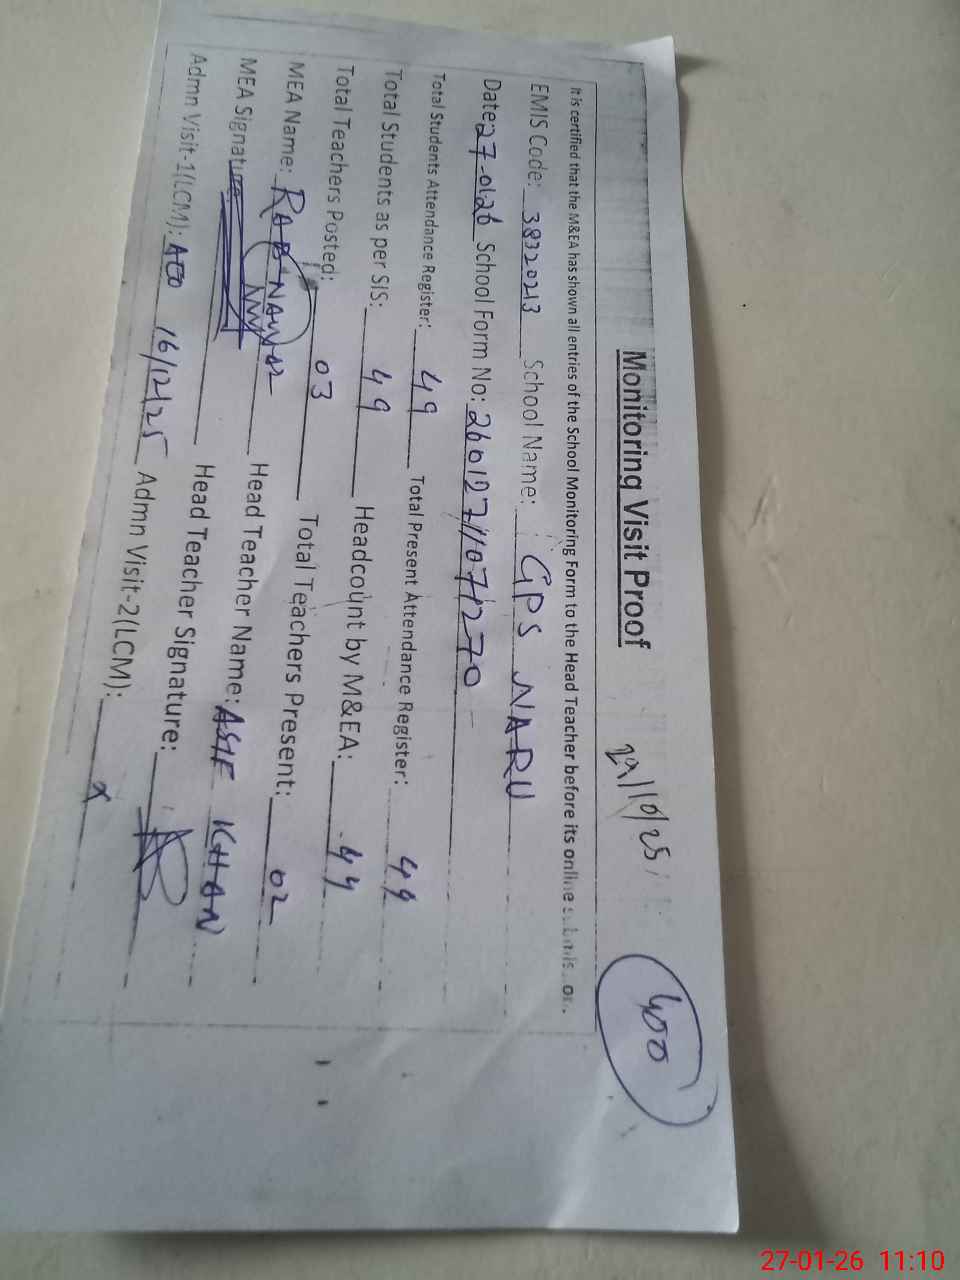 Monitoring Visit Proof 29/10/25 400
It is certified that the M&EA has shown all entries of the School Monitoring Form to the Head Teacher before its online
EMIS Code: 38320213 School Name: GPS NARU
Date: 27-01-26 School Form No: 26012711071270
Total Students Attendance Register: 49 Total Present Attendance Register: 44
Total Students as per SIS: 49 Headcount by M&EA: 44
Total Teachers Posted: 03 Total Teachers Present: 02
MEA Name: RAB NAWAZ Head Teacher Name: ASIF KHAN
MEA Signature: Head Teacher Signature:
Admn Visit-1(LCM): AEO 16/12/25 Admn Visit-2(LCM): X
27-01-26 11:10